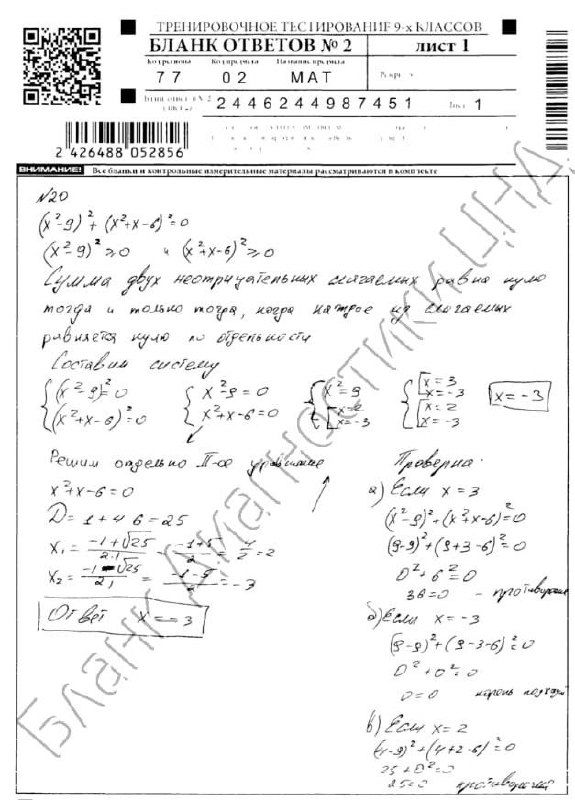 ТРЕНИРОВОЧНОЕ ТЕСТИРОВАНИЕ 9-х КЛАССОВ
БЛАНК ОТВЕТОВ № 2 лист 1
Код региона Код предмета Название предмета
77 02 МАТ
2446244987451 Лист 1
2 426488 052856
ВНИМАНИЕ! Все бланки и контрольные измерительные материалы рассматриваются в комплекте
№20
(x²-9)²+(x²+x-6)²=0
(x²-9)²⩾0 и (x²+x-6)²⩾0
Сумма двух неотрицательных слагаемых равна нулю
тогда и только тогда, когда каждое из слагаемых
равняется нулю по отдельности
Составим систему
{(x²-9)²=0 {x²-9=0 {x²=9 {[x=3 x=-3
{(x²+x-6)²=0 {x²+x-6=0 {[x=2 x=-3 {[x=2 x=-3
x=-3
Решим отдельно II-ое уравнение
x²+x-6=0
D=1+4 6=25
x₁=(-1+√25)/2·1=(-1+5)/2=4/2=2
x₂=(-1-√25)/2·1=(-1-5)/2=-3
Ответ x=-3
Проверка.
а) Если x=3
(x²-9)²+(x²+x-6)²=0
(9-9)²+(9+3-6)²=0
0²+6²=0
36=0 - противоречие
б) Если x=-3
(9-9)²+(9-3-6)²=0
0²+0²=0
0=0 корень подходит
в) Если x=2
(4-9)²+(4+2-6)²=0
25+0²=0
25=0
Бланк Диагностики ЦНД